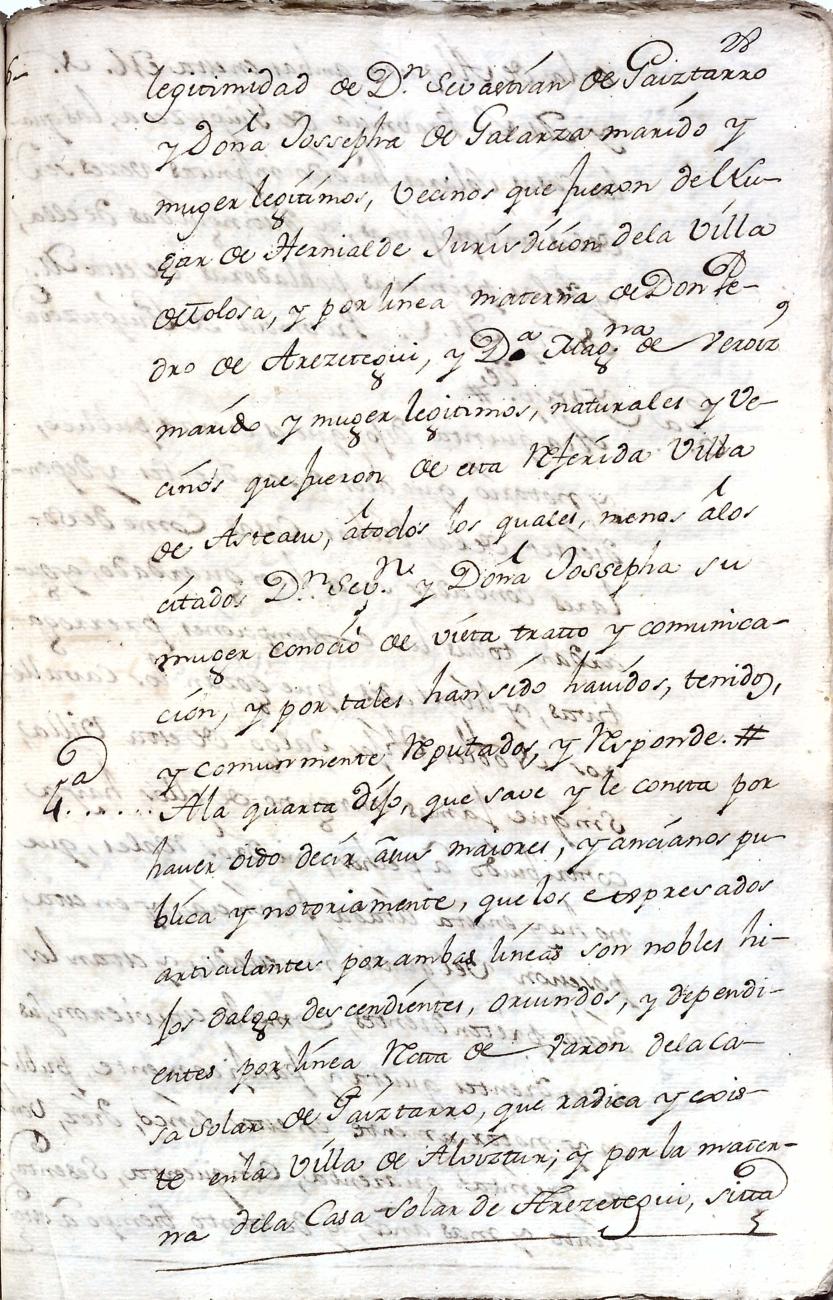 28
legitimidad de Dn. Sevastián de Gaiztarro
y Doña Jossepha de Galarza marido y
muger legítimos, Vecinos que fueron del Lu-
gar de Hernialde Jurisdición dela Villa
de Tolosa, y por línea materna de Don Pe-
dro de Arezetegui, y Da. Magna. de Veroiz
marido y muger legitimos, naturales y Ve-
cinos que fueron de esta referida Villa
de Asteasu, átodos los quales, menos álos
citados Dn. Sevn. y Doña Jossepha su
muger conoció de vista tratto y comunica-
ción, y por tales han sido havidos, tenidos,
y comunmente reputados, y responde. #
4a. ..... Ala quarta dijo, que save y le consta por
haver oido decír asus maiores, y ancíanos pu-
blica y notoriamente, que los expresados
articulantes por ambas líneas son nobles hi-
jos dalgo, descendíentes, oriundos, y dependi-
entes por línea recta de varon dela Ca-
sa Solar de Gaiztarro, que radica y exis-
te enla Villa de Alviztur; y por la mater-
na dela Casa Solar de Arezetegui, sitta